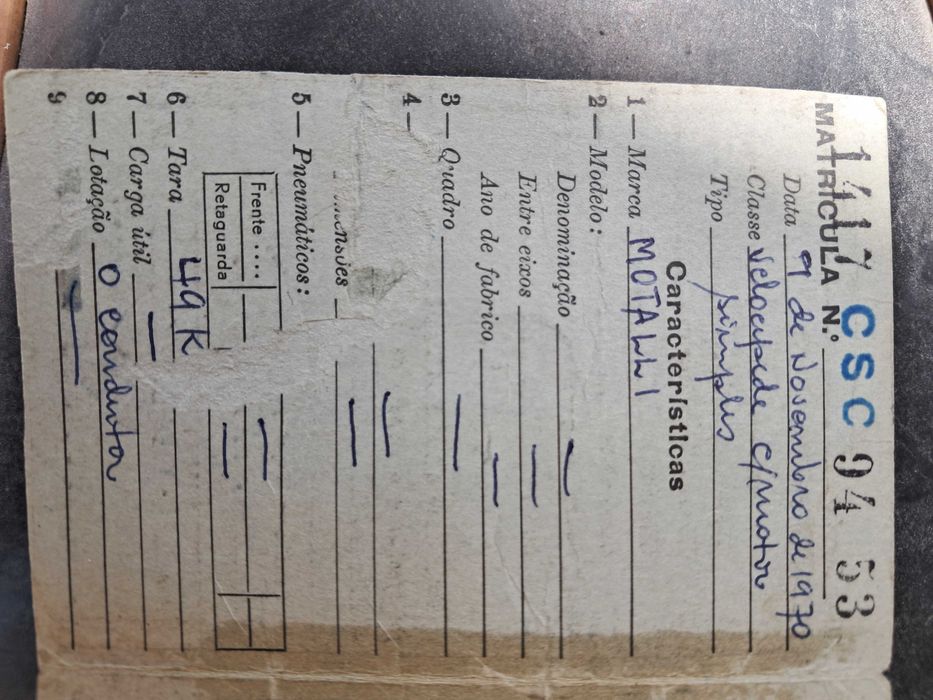 1417 CSC 94 53
MATRÍCULA N.º
Data 9 de Novembro de 1970
Classe Velocípede c/motor
Tipo simples
Características
1 — Marca MOTALLI
2 — Modelo:
Denominação —
Entre eixos —
Ano de fabrico —
3 — Quadro —
4 — —
5 — Pneumáticos:
Frente .... —
Retaguarda —
6 — Tara 49 K
7 — Carga útil —
8 — Lotação O condutor
9 —